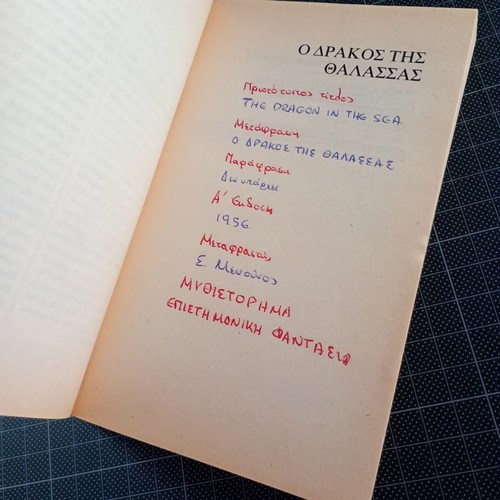 Ο ΔΡΑΚΟΣ ΤΗΣ
ΘΑΛΑΣΣΑΣ
Πρωτότυπος τίτλος
THE DRAGON IN THE SEA
Μετάφραση
Ο ΔΡΑΚΟΣ ΤΗΣ ΘΑΛΑΣΣΑΣ
Παράφραση
Δεν υπάρχει
Α' Έκδοση
1956
Μεταφραστής
Σ.
ΜΥΘΙΣΤΟΡΗΜΑ
ΕΠΙΣΤΗΜΟΝΙΚΗ ΦΑΝΤΑΣΙΑ